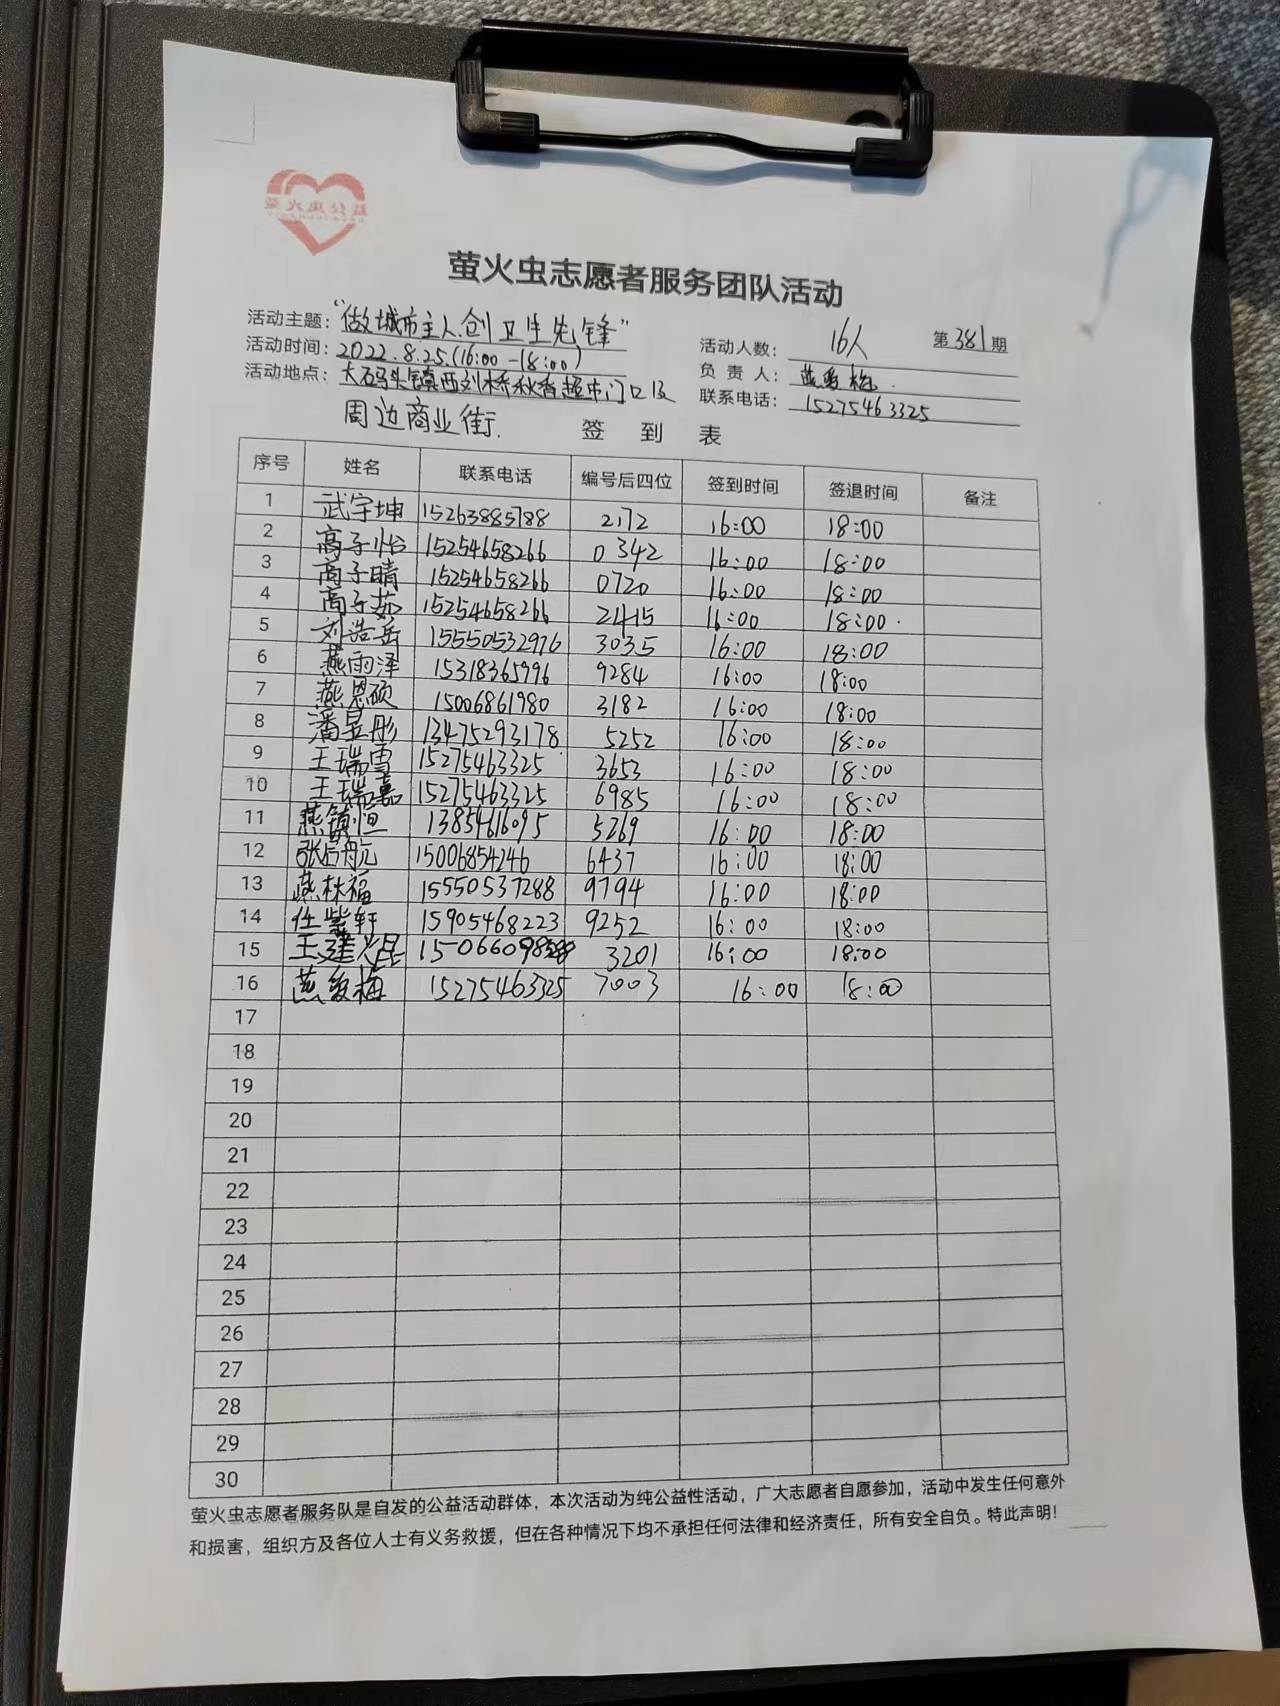 萤火虫公益
萤火虫志愿者服务团队活动
活动主题："做城市主人.创卫生先锋"
活动人数：16人 第381期
活动时间：2022.8.25.(16:00-18:00)
负责人：燕爱梅.
活动地点：大码头镇西刘桥秋香超市门口及
联系电话：15275463325
周边商业街.
签到表
序号 姓名 联系电话 编号后四位 签到时间 签退时间 备注
1 武宇坤 15263885788 2172 16:00 18:00
2 高子怡 15254658266 0342 16:00 18:00
3 商子晴 15254658266 0720 16:00 18:00
4 商子茹 15254658266 2415 16:00 18:00.
5 刘浩岳 15550532976 3035 16:00 18:00
6 燕雨泽 15318365996 9284 16:00 18:00
7 燕恩硕 15006861980 3182 16:00 18:00
8 潘昱彤 13475293178 5252 16:00 18:00
9 王瑞雪 15275463325 3653 16:00 18:00
10 王瑞嘉 15275463325 6985 16:00 18:00
11 燕镇恒 13854616095 5269 16:00 18:00
12 张启航 15006854246 6437 16:00 18:00
13 燕林福 15550537288 9794 16:00 18:00
14 任紫轩 15905468223 9252 16:00 18:00
15 王建 3201 16:00 18:00
16 燕爱梅 15275463325 7003 16:00 18:00
17
18
19
20
21
22
23
24
25
26
27
28
29
30
萤火虫志愿者服务队是自发的公益活动群体，本次活动为纯公益性活动，广大志愿者自愿参加，活动中发生任何意外
和损害，组织方及各位人士有义务救援，但在各种情况下均不承担任何法律和经济责任，所有安全自负。特此声明！